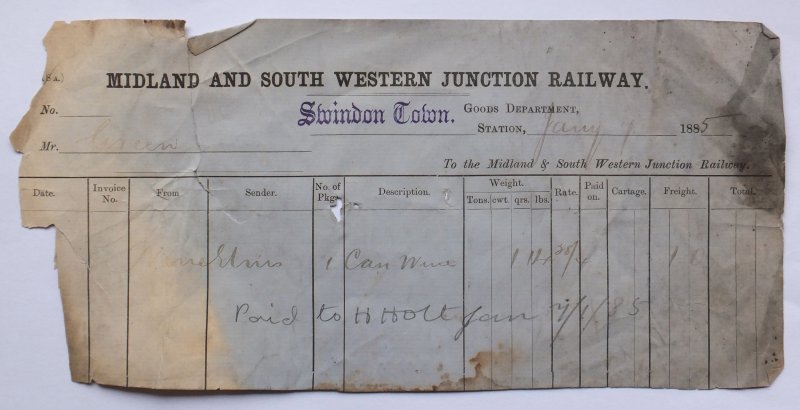 (8 A.)
MIDLAND AND SOUTH WESTERN JUNCTION RAILWAY.
No.
Swindon Town. GOODS DEPARTMENT,
STATION, Jany 1 1885
Mr. Green
To the Midland & South Western Junction Railway.
Date. Invoice No. From Sender. No. of Pkgs. Description. Weight. Tons. cwt qrs. lbs. Rate. Paid on. Cartage. Freight. Total.
1 Can Wine 1 14 1
Paid to H Holt Jan 7/1/85